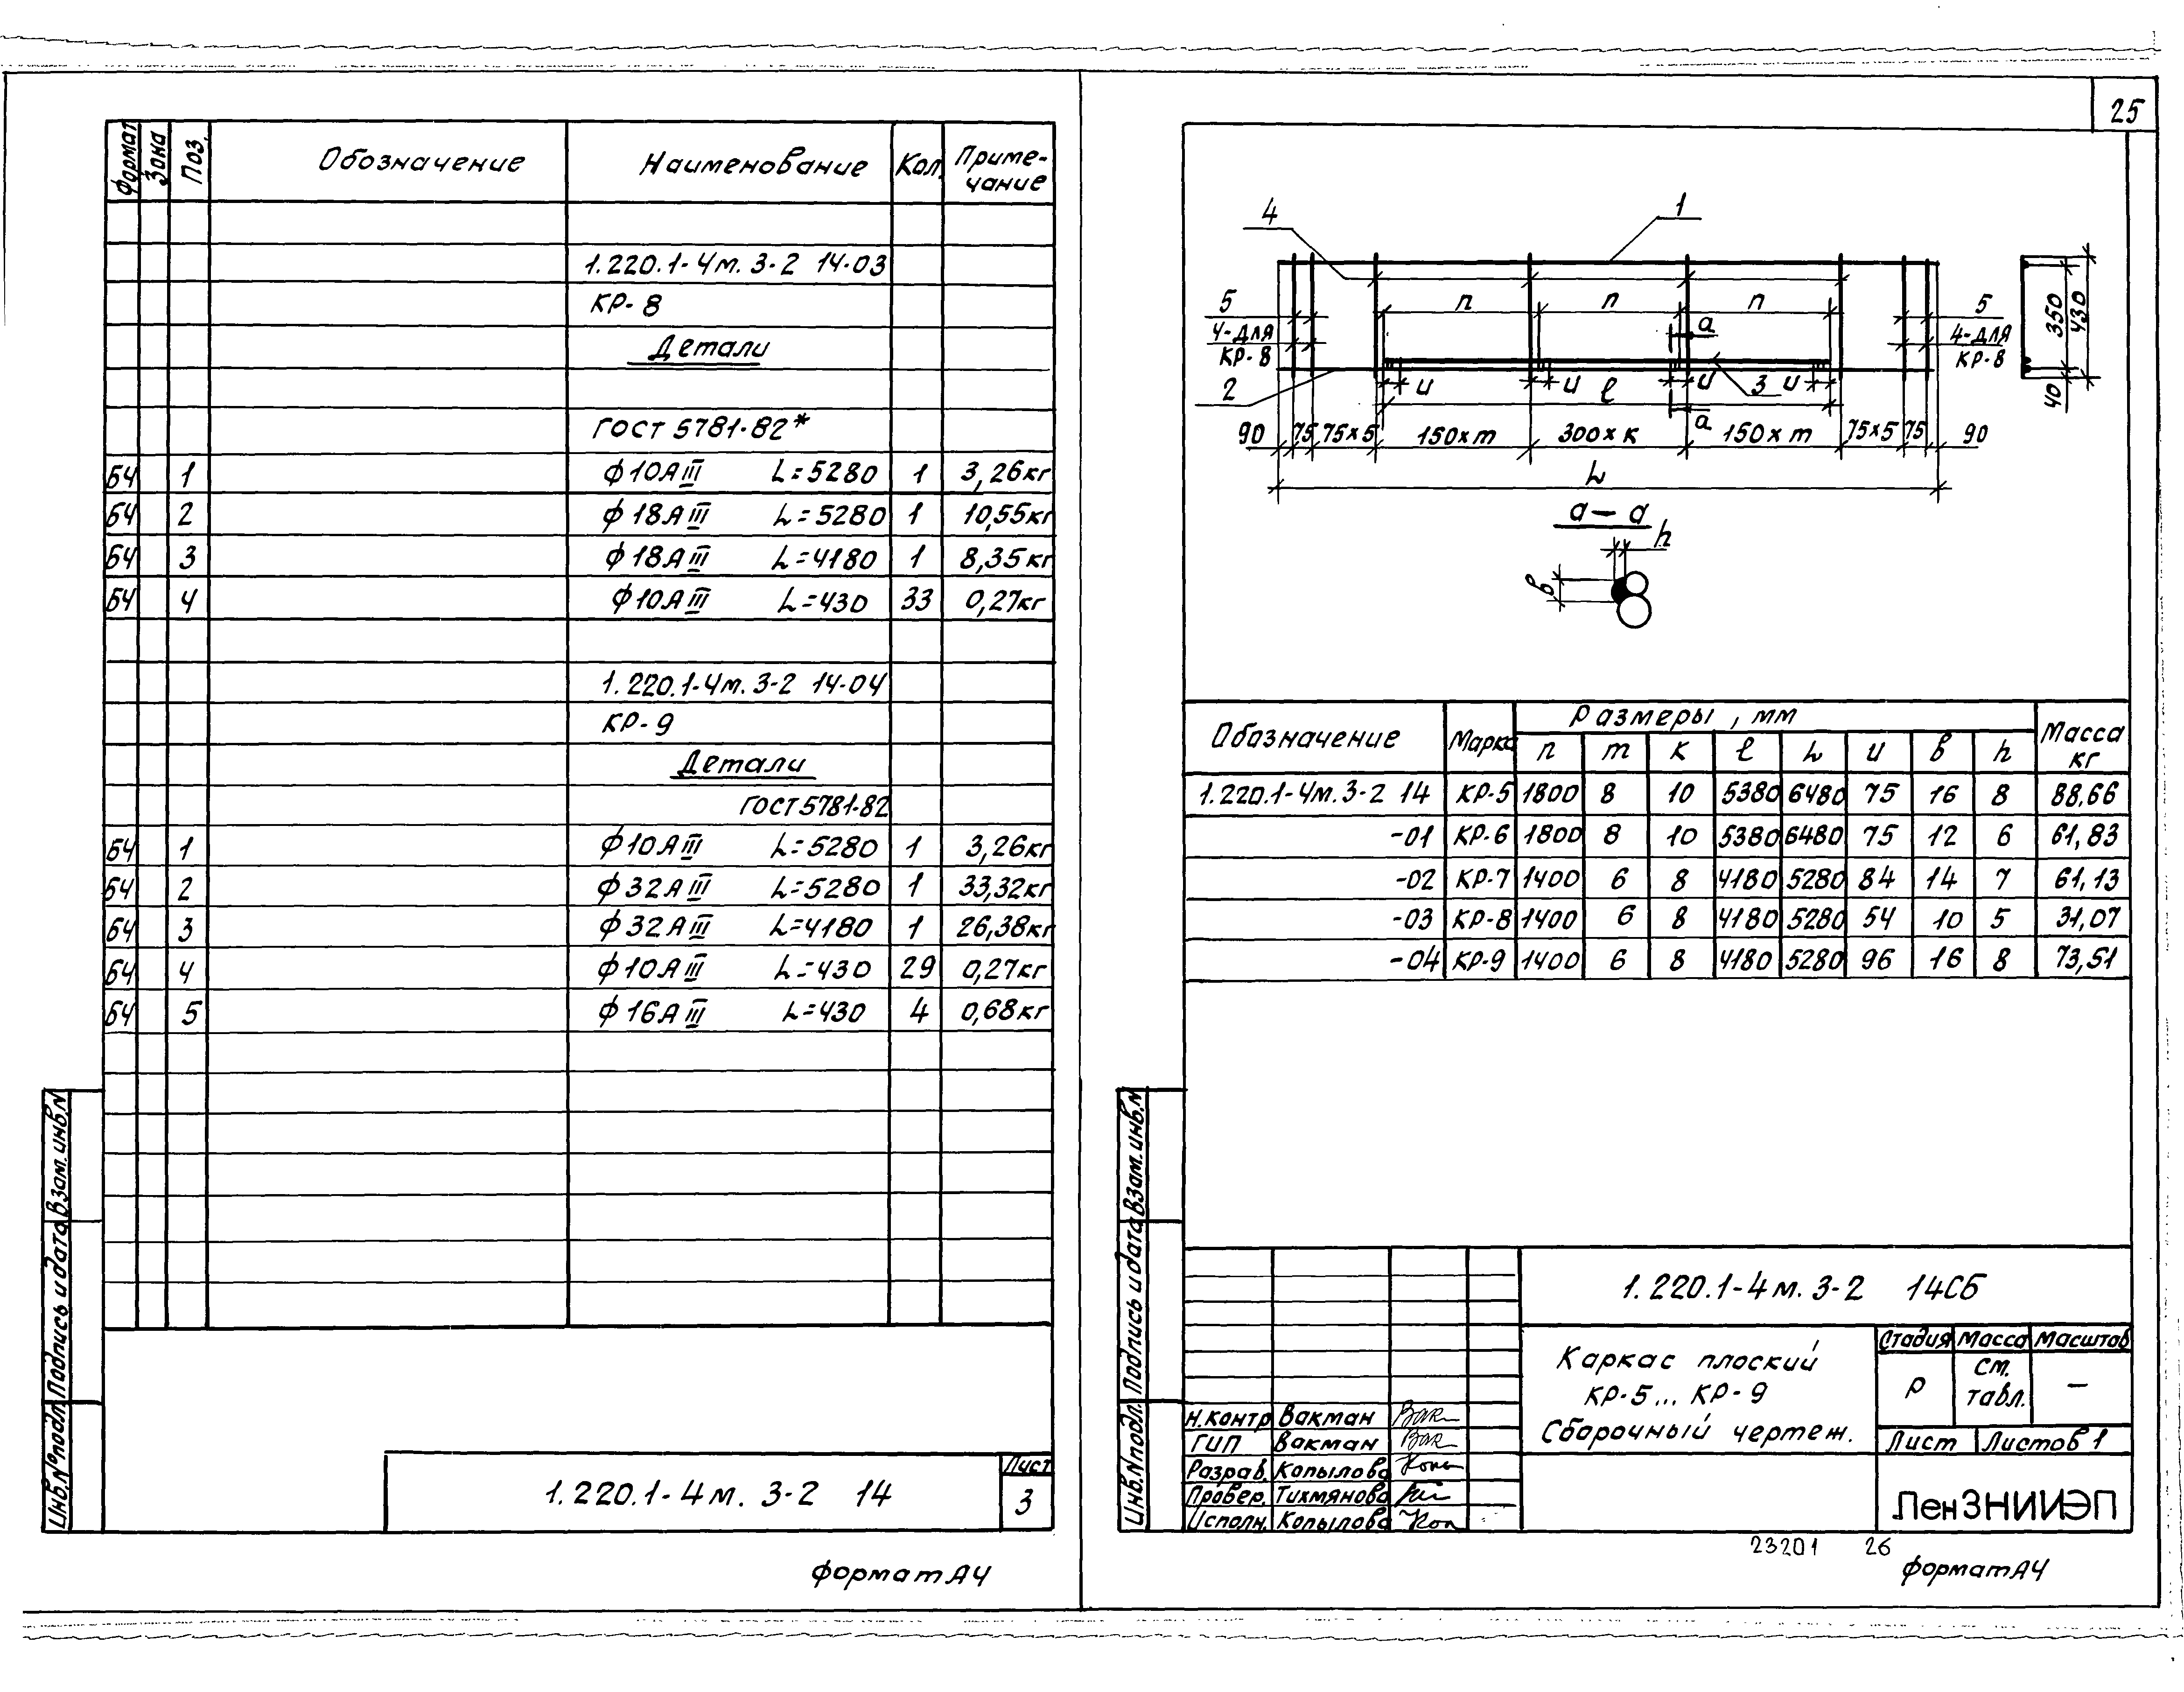 25
Формат Зона Поз. Обозначение Наименование Кол. Приме-
чание
1.220.1-4м.3-2 14-03
КР-8
Детали
ГОСТ 5781-82*
БЧ 1 ф10АIII L=5280 1 3,26кг
БЧ 2 ф18АIII L=5280 1 10,55кг
БЧ 3 ф18АIII L=4180 1 8,35кг
БЧ 4 ф10АIII L=430 33 0,27кг
1.220.1-4м.3-2 14-04
КР-9
Детали
ГОСТ 5781-82
БЧ 1 ф10АIII L=5280 1 3,26кг
БЧ 2 ф32АIII L=5280 1 33,32кг
БЧ 3 ф32АIII L=4180 1 26,38кг
БЧ 4 ф10АIII L=430 29 0,27кг
БЧ 5 ф16АIII L=430 4 0,68кг
Инв.№подл. Подпись и дата Взам.инв.№
1.220.1-4м.3-2 14
Лист
3
Формат А4
4 1
5 n n n 5
4-для
КР-8
а
4-для
КР-8
350 430 40
2 и и и 3 и
ℓ
а
90 75 75х5 150хm 300хк 150хm 75х5 75 90
L
а-а
h
в
Обозначение Марка Размеры, мм Масса
кг
n m к ℓ L и в h
1.220.1-4м.3-2 14 КР-5 1800 8 10 5380 6480 75 16 8 88,66
-01 КР-6 1800 8 10 5380 6480 75 12 6 61,83
-02 КР-7 1400 6 8 4180 5280 84 14 7 61,13
-03 КР-8 1400 6 8 4180 5280 54 10 5 31,07
-04 КР-9 1400 6 8 4180 5280 96 16 8 73,51
Инв.№подл. Подпись и дата Взам.инв.№
1.220.1-4м.3-2 14СБ
Каркас плоский
КР-5... КР-9
Сборочный чертеж.
Стадия Масса Масштаб
Р см.
табл. —
Лист Листов 1
Н.контр Вакман Вак
ГИП Вакман Вак
Разраб. Копылова
Провер. Тихмянова
Исполн. Копылова Коп
ЛенЗНИИЭП
23201 26
Формат А4